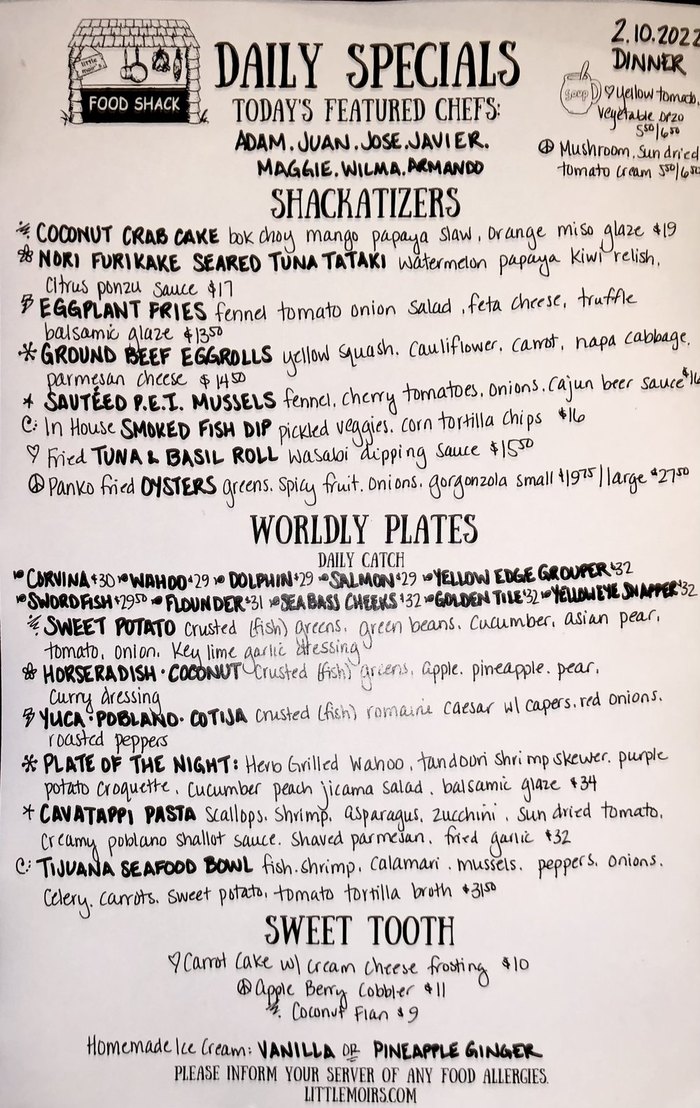 little moir's
FOOD SHACK
DAILY SPECIALS
TODAY'S FEATURED CHEFS:
ADAM. JUAN. JOSE. JAVIER.
MAGGIE. WILMA. ARMANDO
2.10.2022
DINNER
soup
yellow tomato,
vegetable orzo
5⁵⁰/6⁵⁰
Mushroom, sun dried
tomato cream 5⁵⁰/6⁵⁰
SHACKATIZERS
COCONUT CRAB CAKE bok choy mango papaya slaw, orange miso glaze $19
NORI FURIKAKE SEARED TUNA TATAKI watermelon papaya kiwi relish,
citrus ponzu sauce $17
EGGPLANT FRIES fennel tomato onion salad, feta cheese, truffle
balsamic glaze $13⁵⁰
GROUND BEEF EGGROLLS yellow squash. cauliflower, carrot, napa cabbage,
parmesan cheese $14⁵⁰
SAUTÉED P.E.I. MUSSELS fennel, cherry tomatoes, onions, cajun beer sauce $16
In House SMOKED FISH DIP pickled veggies. corn tortilla chips $16
Fried TUNA & BASIL ROLL wasabi dipping sauce $15⁵⁰
Panko fried OYSTERS greens. spicy fruit. onions. gorgonzola small $19⁷⁵ | large $27⁵⁰
WORLDLY PLATES
DAILY CATCH
CORVINA $30 WAHOO $29 DOLPHIN $29 SALMON $29 YELLOW EDGE GROUPER $32
SWORDFISH $29⁵⁰ FLOUNDER $31 SEA BASS CHEEKS $32 GOLDEN TILE $32 YELLOWEYE SNAPPER $32
SWEET POTATO crusted (fish) greens, green beans. cucumber, asian pear,
tomato, onion, key lime garlic dressing
HORSERADISH · COCONUT crusted (fish) greens, apple. pineapple. pear,
curry dressing
YUCA · POBLANO · COTIJA crusted (fish) romaine caesar w/ capers, red onions.
roasted peppers
PLATE OF THE NIGHT: Herb Grilled Wahoo, tandoori shrimp skewer. purple
potato croquette, cucumber peach jicama salad, balsamic glaze $34
CAVATAPPI PASTA scallops. shrimp, asparagus, zucchini, sun dried tomato,
creamy poblano shallot sauce. shaved parmesan, fried garlic $32
TIJUANA SEAFOOD BOWL fish. shrimp, calamari. mussels. peppers. onions.
celery. carrots. sweet potato, tomato tortilla broth $31⁵⁰
SWEET TOOTH
Carrot Cake w/ cream cheese frosting $10
Apple Berry Cobbler $11
Coconut Flan $9
Homemade Ice Cream: VANILLA OR PINEAPPLE GINGER
PLEASE INFORM YOUR SERVER OF ANY FOOD ALLERGIES.
LITTLEMOIRS.COM